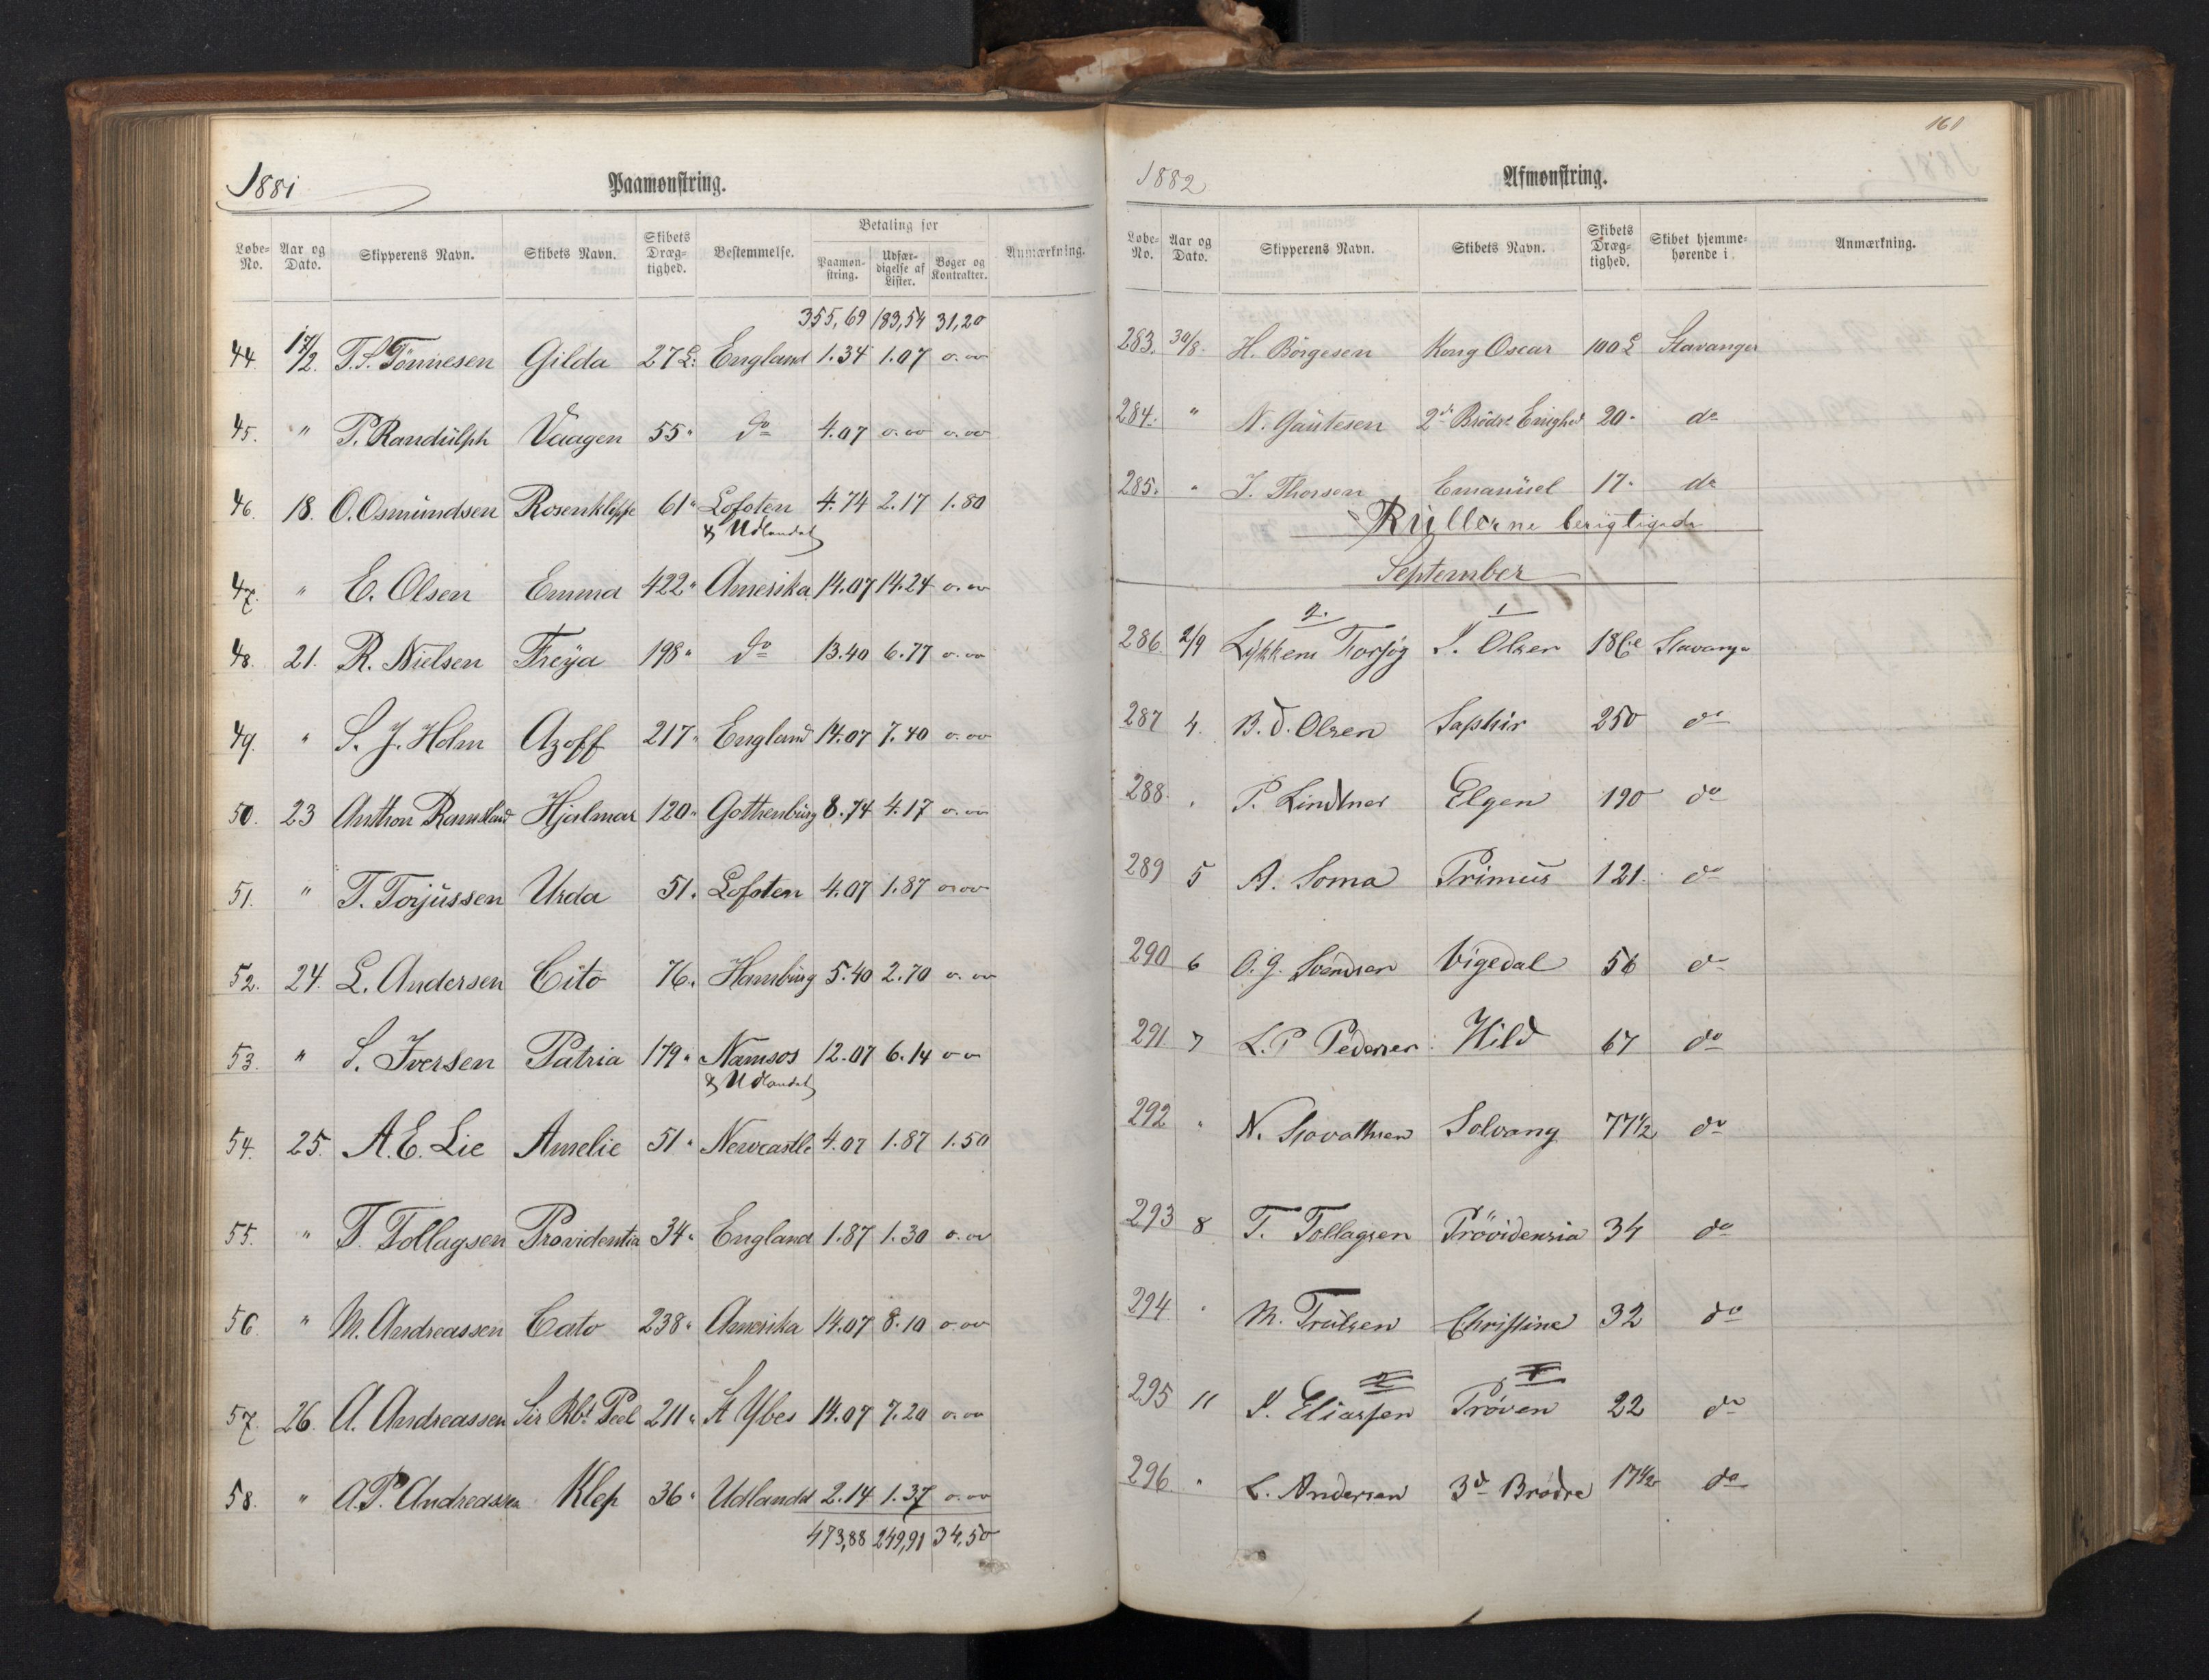 1881
Paamønstring.
Løbe-No. Aar og Dato. Skipperens Navn. Skibets Navn. Skibets Dræg-tighed. Bestemmelse. Betaling for Paamøn-string. Udfær-digelse af Lister. Bøger og Kontrakter. Anmærkning.
355,69 183,54 31,20
44. 17/2. T. S. Tönnesen Gilda 27 L: England 1.34 1.07 0.00
45. " P. Randulph Vaagen 55 " do 4.07 0.00 0.00
46. 18. O. Osmundsen Rosenklippe 61 " Lofoten 4.74 2.17 1.80
& Udlandet
47. " E. Olsen Emma 422 " Amerika 14.07 14.24 0.00
48. 21. R. Nielsen Freya 198 " do 13.40 6.77 0.00
49. " S. J. Holm Azoff 217 " England 14.07 7.40 0.00
50. 23 Anthon Ramsland Hjalmar 120 " Gothenburg 8.74 4.17 0.00
51. " T. Torjussen Urda 51 " Lofoten 4.07 1.87 0.00
52. 24. L. Andersen Cito 76 " Hamburg 5.40 2.70 0.00
53. " S. Iversen Patria 179 " Namsos 12.07 6.14 0 0
& Udlandet
54. 25. A. E. Lie Amelie 51 " Newcastle 4.07 1.87 1.50
55. " T. Tollagsen Providentia 34 " England 1.87 1.30 0.00
56. " M. Andreassen Cato 238 " Amerika 14.07 8.10 0.00
57. 26. A. Andreassen Sir Rbt. Peel 211 " St Ybes 14.07 7.20 0.00
58. " A. P. Andreassen Klep 36 " Udlandet 2.14 1.37 0.00
473,88 249,91 34,50
161
1882
Afmønstring.
Løbe-No. Aar og Dato. Skipperens Navn. Skibets Navn. Skibets Dræg-tighed. Skibet hjemme-hørende i Anmærkning.
283. 30/8. H. Börgesen Kong Oscar 100 L Stavanger
284. " N. Gautesen 2de Brödre Enighed 20 " do
285. " J. Thorsen Emanuel 17 " do
Rullerne berigtigede
September
2. 1
286. 2/9 Lykkens Forsøg J. Olsen 18 Cl Stavanger
287 4. B. D. Olsen Saphir 250 do
288. " P. Lindtner Elgen 190 do
289 5 A. Soma Primus 121. do
290 6 O. G. Svendsen Vigedal 56 do
291 7 L. P. Pedersen Hild 67 do
292 " N. Solvang 77 1/2 do
293 8 T. Tollagsen Providensia 34 do
294 " M. Trulsen Christine 32 do
2 1
295 11 J. Eliassen Prøven 22 do
296 " L. Andersen 3de Brødre 17 1/2 do